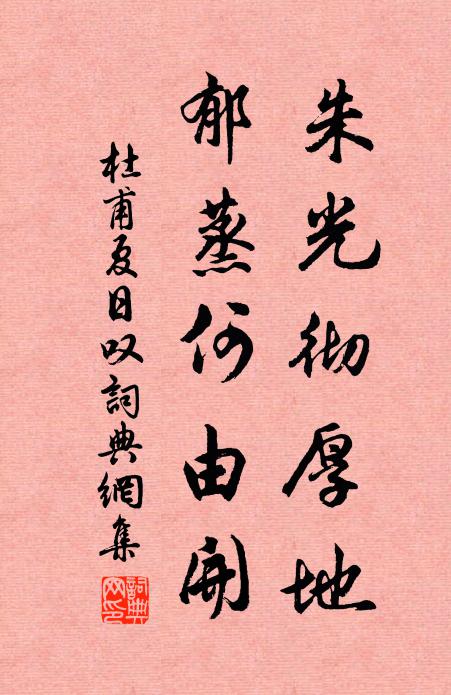 朱光彻厚地
郁蒸何由开
杜甫夏日叹詞典網集
詞典網印